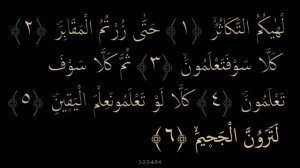 لْهٰىكُمُ التَّكَاثُرُ ﴿١﴾ حَتّٰى زُرْتُمُ الْمَقَابِرَ ﴿٢﴾
كَلَّا سَوْفَتَعْلَمُونَ ﴿٣﴾ ثُمَّ كَلَّا سَوْفَ
تَعْلَمُونَ ﴿٤﴾ كَلَّا لَوْ تَعْلَمُونَعِلْمَ الْيَقِينِ ﴿٥﴾
لَتَرَوُنَّ الْجَحِيمَ ﴿٦﴾
1-2-3-4-5-6